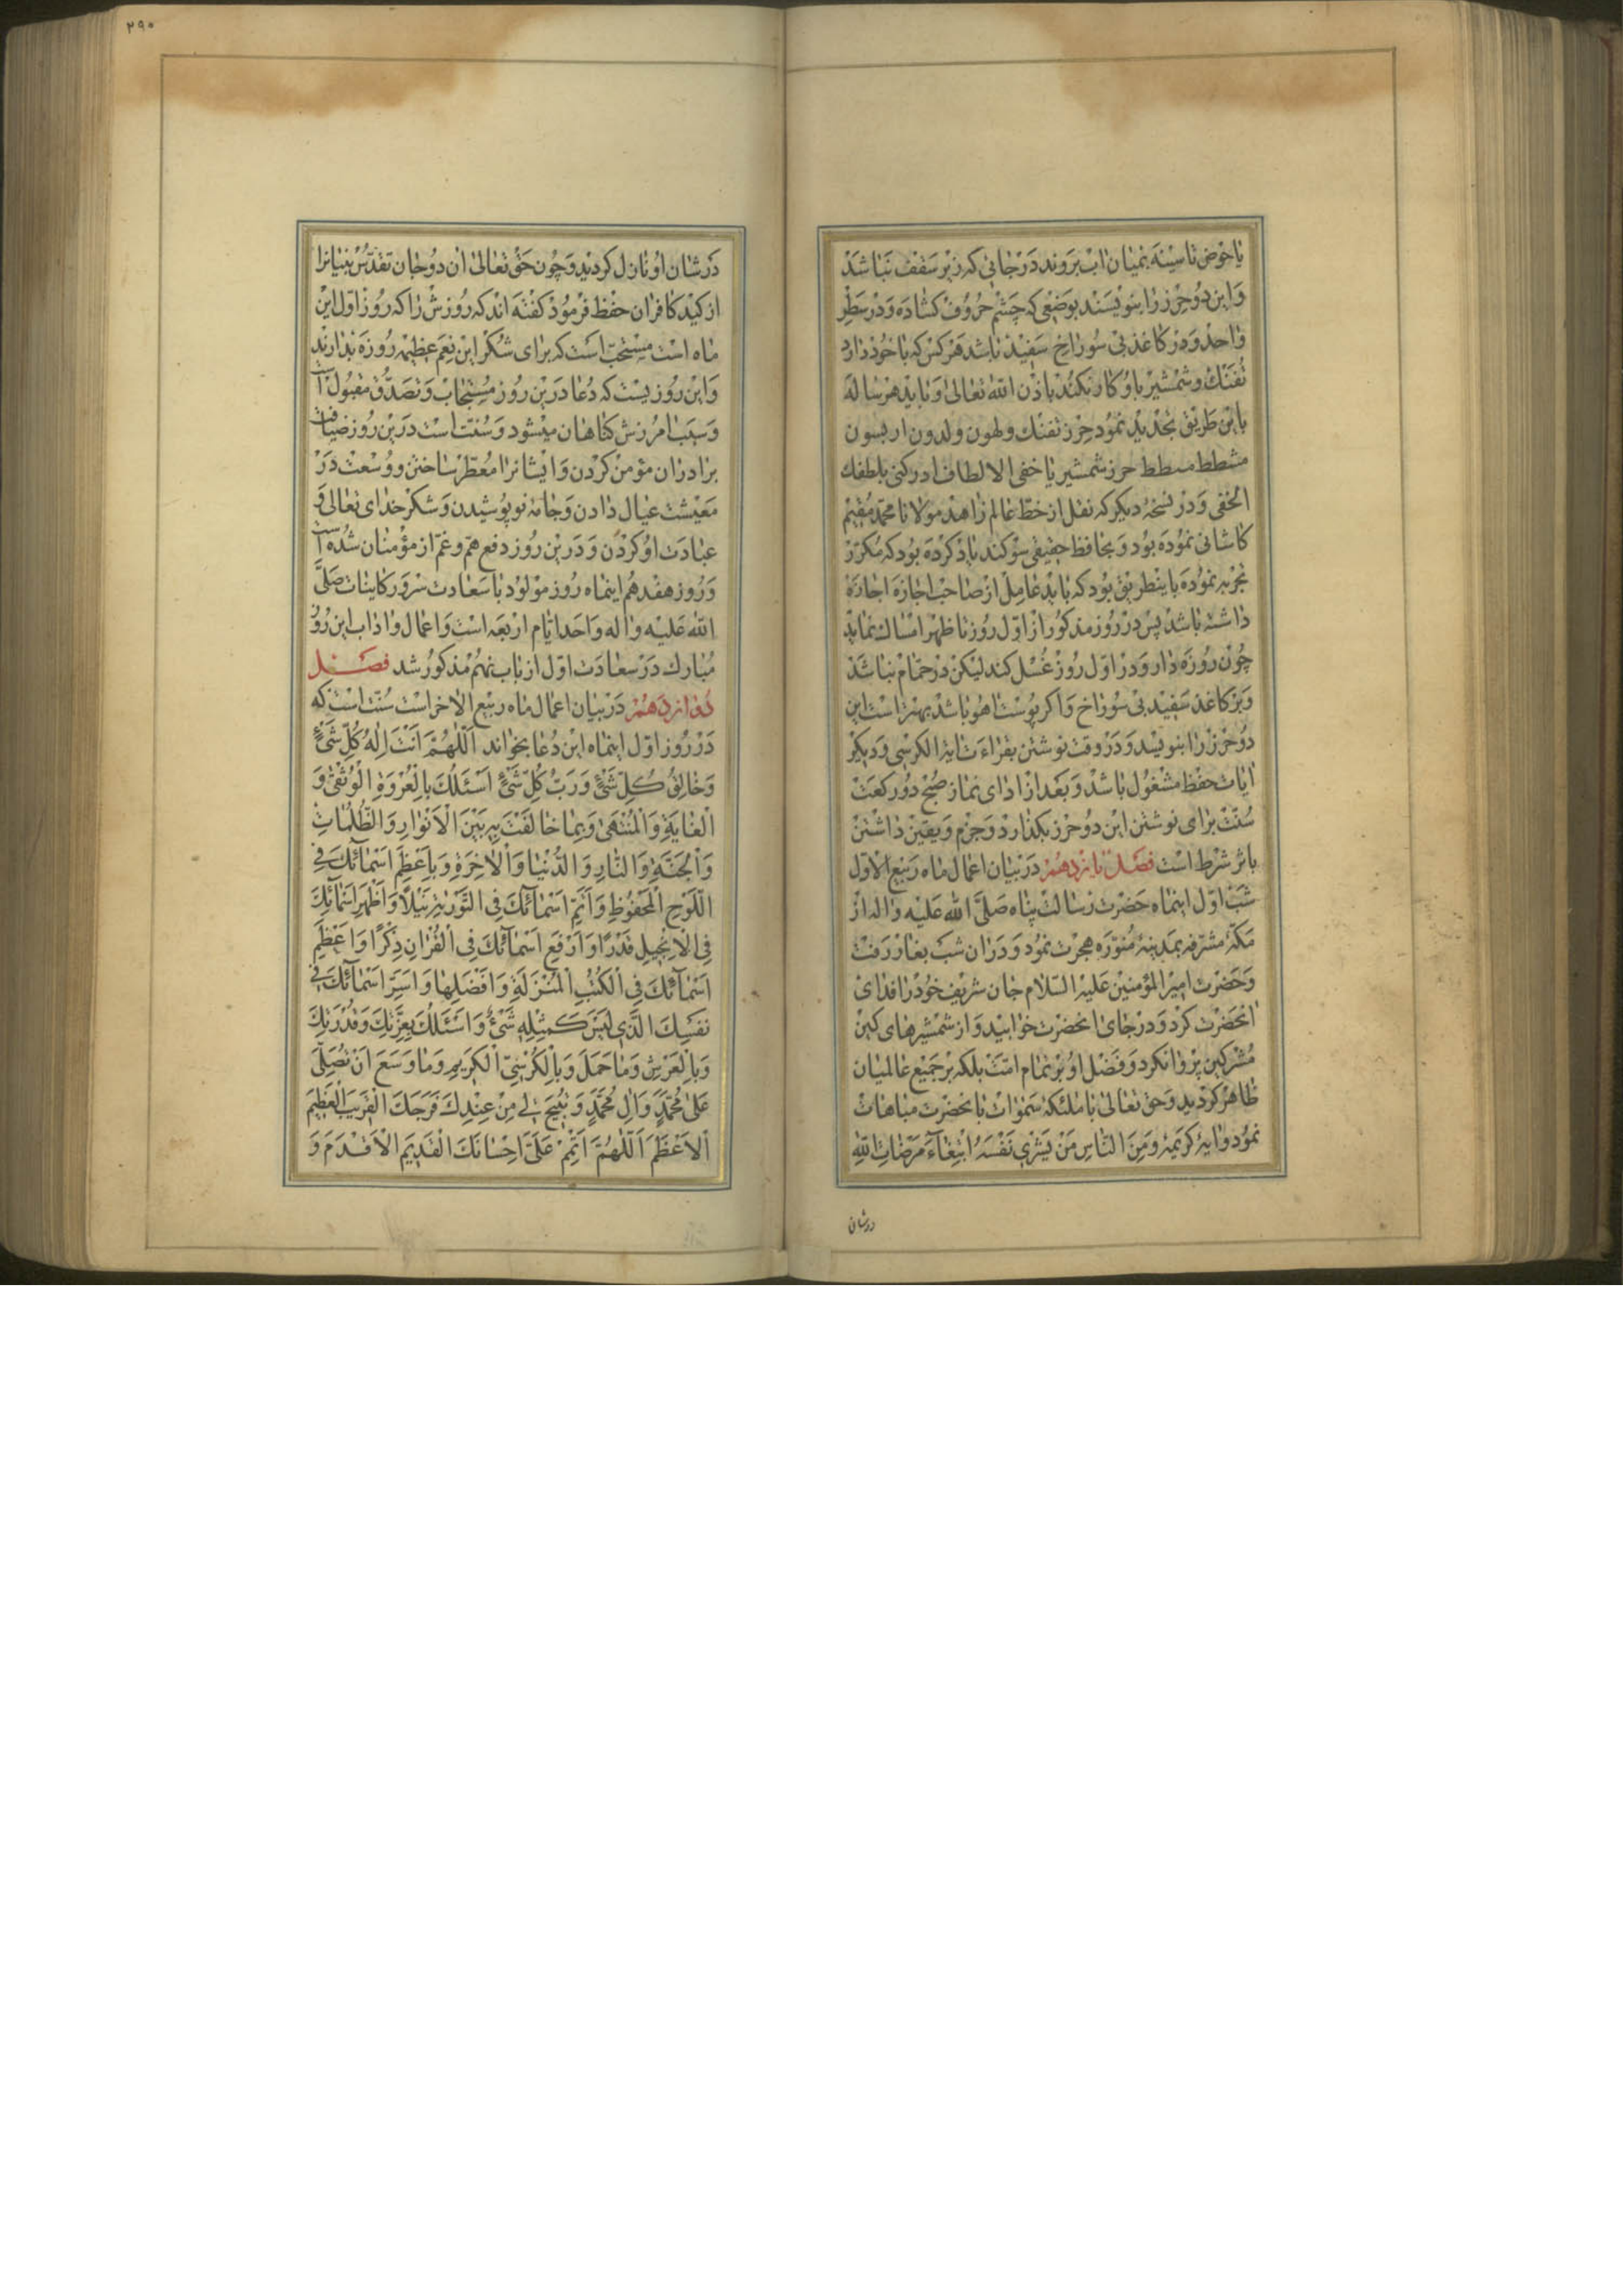 یا حوض تا سینه بمیان اب بروند در جائی که زیر سقف نباشد
و این دو حرز را بنویسند بوضعی که چشم حروف کشاده و در سطر
واحد و در کاغذ بی سوراخ سفید باشد هر کس که با خود دارد
تفنک و شمشیر باو کار نکند باذن الله تعالی و باید هر ساله
باین طریق تجدید نمود حرز تفنک ولهون ولدون اربسون
مشطط مسطط حرز شمشیر یا خفی الالطاف ادرکنی بلطفك
الخفی و در نسخهٔ دیکر که نقل از خط عالم زاهد مولانا محمد مقیم
کاشانی نموده بود و بحافظ حقیقی سوکند یاد کرده بود که مکرر
تجربه نموده باینطریق بود که باید عامل از صاحب اجازه اجازه
داشته باشد پس در روز مذکور از اول روز تا ظهر امساك نماید
چون روزه دار و در اول روز غسل کند لیکن در حمام نباشد
و بر کاغذ سفید بی سوراخ و اکر پوست اهو باشد بهتر است این
دو حرز را بنویسد و در وقت نوشتن بقراءت ایة الکرسی و دیکر
ایات حفظ مشغول باشد و بعد از ادای نماز صبح دو رکعت
سنت برای نوشتن این دو حرز بکذارد و جزم و یقین داشتن
باثر شرط است فصل یازدهم در بیان اعمال ماه ربیع الاول
شب اول اینماه حضرت رسالت پناه صلی الله علیه واله از
مکهٔ مشرفه بمدینهٔ منوره هجرت نمود و در ان شب بغار رفت
و حضرت امیر المؤمنین علیه السلام جان شریف خود را فدای
انحضرت کرد و در جای انحضرت خوابید و از شمشیرهای کین
مشرکین پروا نکرد و فضل او بر تمام امت بلکه بر جمیع عالمیان
ظاهر کردید و حق تعالی با ملئکه سموات بانحضرت مباهات
نمود و ایهٔ کریمهٔ وَمِنَ النَّاسِ مَنْ يَشْرِي نَفْسَهُ ابْتِغَاءَ مَرْضَاتِ اللهِ
درشان
۲۹۰
در شان او نازل کردید و چون حق تعالی ان دو جان تقدس بنیانرا
از کید کافران حفظ فرمود کفته اند که روزش را که روز اول این
ماه است مستحب است که برای شکر این نعم عظیمه روزه بدارند
و این روزیست که دعا درین روز مستجاب و تصدق مقبول است
و سبب امرزش کناهان میشود و سنت است درین روز ضیافت
برادران مؤمن کردن و ایشانرا معطر ساختن و وسعت در
معیشت عیال دادن و جامه نو پوشیدن و شکر خدای تعالی و
عبادت او کردن و درین روز دفع هم و غم از مؤمنان شده است
و روز هفدهم اینماه روز مولود با سعادت سرور کاینات صلی
الله علیه واله و احد ایام اربعه است و اعمال و اداب این روز
مبارك در سعادت اول از باب نهم مذکور شد فصل
دوازدهم در بیان اعمال ماه ربیع الاخر است سنت است که
در روز اول اینماه این دعا بخواند اَللّٰهُمَّ اَنْتَ اِلٰهُ كُلِّ شَيْءٍ
وَخَالِقُ كُلِّ شَيْءٍ وَرَبُّ كُلِّ شَيْءٍ اَسْئَلُكَ بِالْعُرْوَةِ الْوُثْقٰى وَ
الْغَايَةِ وَالْمُنْتَهٰى وَبِمَا خَالَفْتَ بِهِ بَيْنَ الْاَنْوَارِ وَالظُّلُمَاتِ
وَالْجَنَّةِ وَالنَّارِ وَالدُّنْيَا وَالْاٰخِرَةِ وَبِاَعْظَمِ اَسْمَائِكَ فِي
اللَّوْحِ الْمَحْفُوظِ وَاَتَمِّ اَسْمَائِكَ فِي التَّوْرٰيةِ نَيْلًا وَاَظْهَرِ اَسْمَائِكَ
فِي الْاِنْجِيلِ قَدْرًا وَاَرْفَعِ اَسْمَائِكَ فِي الْقُرْاٰنِ ذِكْرًا وَاَعْظَمِ
اَسْمَائِكَ فِي الْكُتُبِ الْمُنْزَلَةِ وَاَفْضَلِهَا وَاَسَرِّ اَسْمَائِكَ فِي
نَفْسِكَ الَّذِي لَيْسَ كَمِثْلِهِ شَيْءٌ وَاَسْئَلُكَ بِعِزَّتِكَ وَقُدْرَتِكَ
وَبِالْعَرْشِ وَمَا حَمَلَ وَبِالْكُرْسِيِّ الْكَرِيمِ وَمَا وَسَعَ اَنْ تُصَلِّيَ
عَلٰى مُحَمَّدٍ وَاٰلِ مُحَمَّدٍ وَتُبِيحَ لِي مِنْ عِنْدِكَ فَرَجَكَ الْقَرِيبَ الْعَظِيمَ
الْاَعْظَمَ اَللّٰهُمَّ اَتْمِمْ عَلَيَّ اِحْسَانَكَ الْقَدِيمَ الْاَقْدَمَ وَ